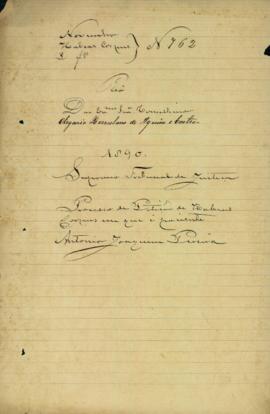 Novembro
Habeas Corpus } N 762
Do Exmo Snr Conselheiro
Olegario Herculano de Aquino e Castro
1890
Supremo Tribunal de Justiça
Processo de Petição de Habeas
Corpus em que é paciente
Antonio Joaquim Pereira